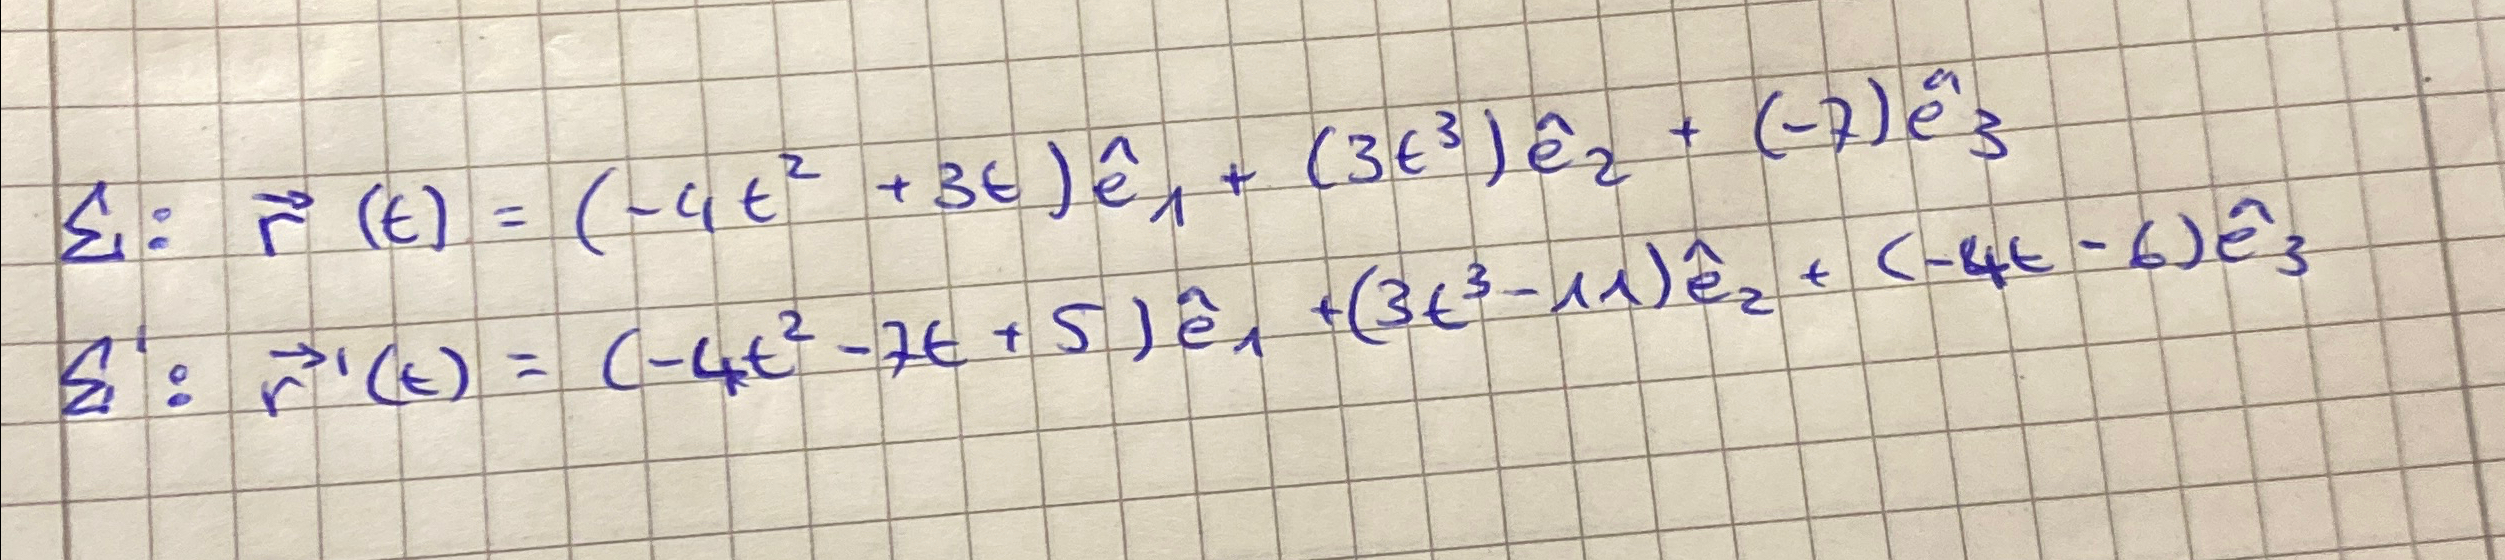 Σ: r⃗ (t) = (-4t² + 3t) ê₁ + (3t³) ê₂ + (-7) ê₃
Σ': r⃗'(t) = (-4t² - 7t + 5) ê₁ + (3t³ - 11) ê₂ + (-4t - 6) ê₃